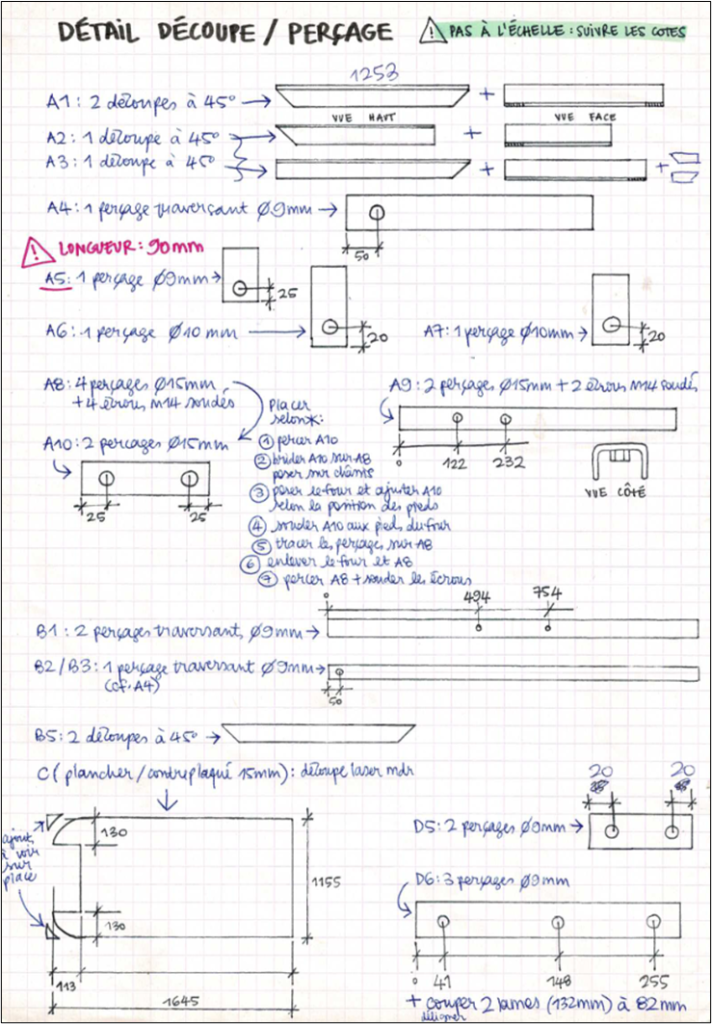 DÉTAIL DÉCOUPE / PERÇAGE
! PAS À L'ÉCHELLE : SUIVRE LES COTES
1253
A1 : 2 découpes à 45° → +
VUE HAUT VUE FACE
A2 : 1 découpe à 45° → +
A3 : 1 découpe à 45° → + +
A4 : 1 perçage traversant Ø9mm →
50
! LONGUEUR : 90mm
A5 : 1 perçage Ø9mm →
25
A6 : 1 perçage Ø10 mm →
20
A7 : 1 perçage Ø10mm →
20
A8 : 4 perçages Ø15mm
+ 4 écrous M14 soudés
A9 : 2 perçages Ø15mm + 2 écrous M14 soudés
0 122 232
VUE CÔTÉ
A10 : 2 percages Ø15mm
25 25
Placer
selon* :
① percer A10
② brider A10 sur A8
poser sur chants
③ poser le four et ajuster A10
selon la position des pieds
④ souder A10 aux pieds du four
⑤ tracer les perçages sur A8
⑥ enlever le four et A8
⑦ percer A8 + souder les écrous
0 494 754
B1 : 2 perçages traversant, Ø9mm →
B2 / B3 : 1 perçage traversant Ø9mm →
(cf. A4)
50
B5 : 2 découpes à 45° →
C ( plancher / contreplaqué 15mm) : découpe laser mdr
ajout
à voir
sur
place
130
1155
130
113
1645
20 20
D5 : 2 perçages Ø9mm →
D6 : 3 perçages Ø9mm
0 41 148 255
+ couper 2 lames (132mm) à 82mm